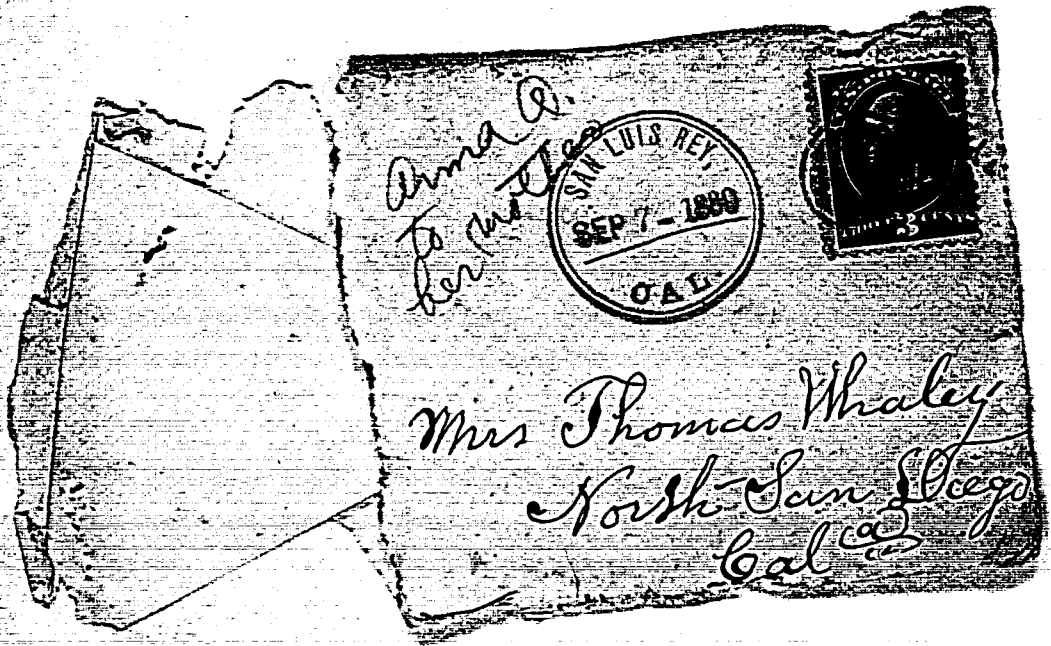 Anna A.
to
her mother
SAN LUIS REY,
SEP 7 - 1880
CAL.
3 CENTS
Mrs Thomas Whaley
North San Diego
Cal (a)